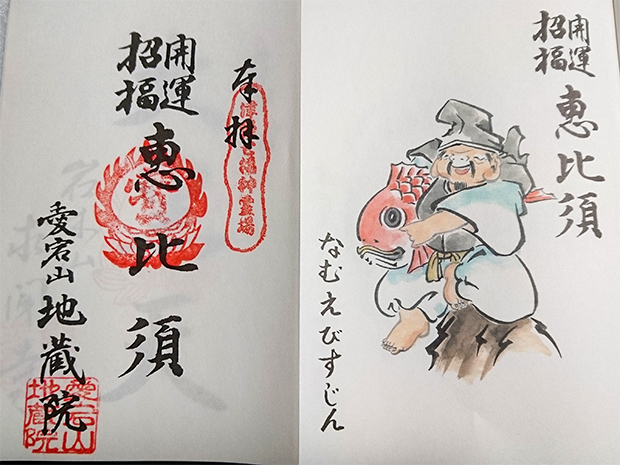 奉拝
開運
招福
恵比須
愛宕山地蔵院
愛宕山
地蔵院
開運
招福
恵比須
なむえびすじん